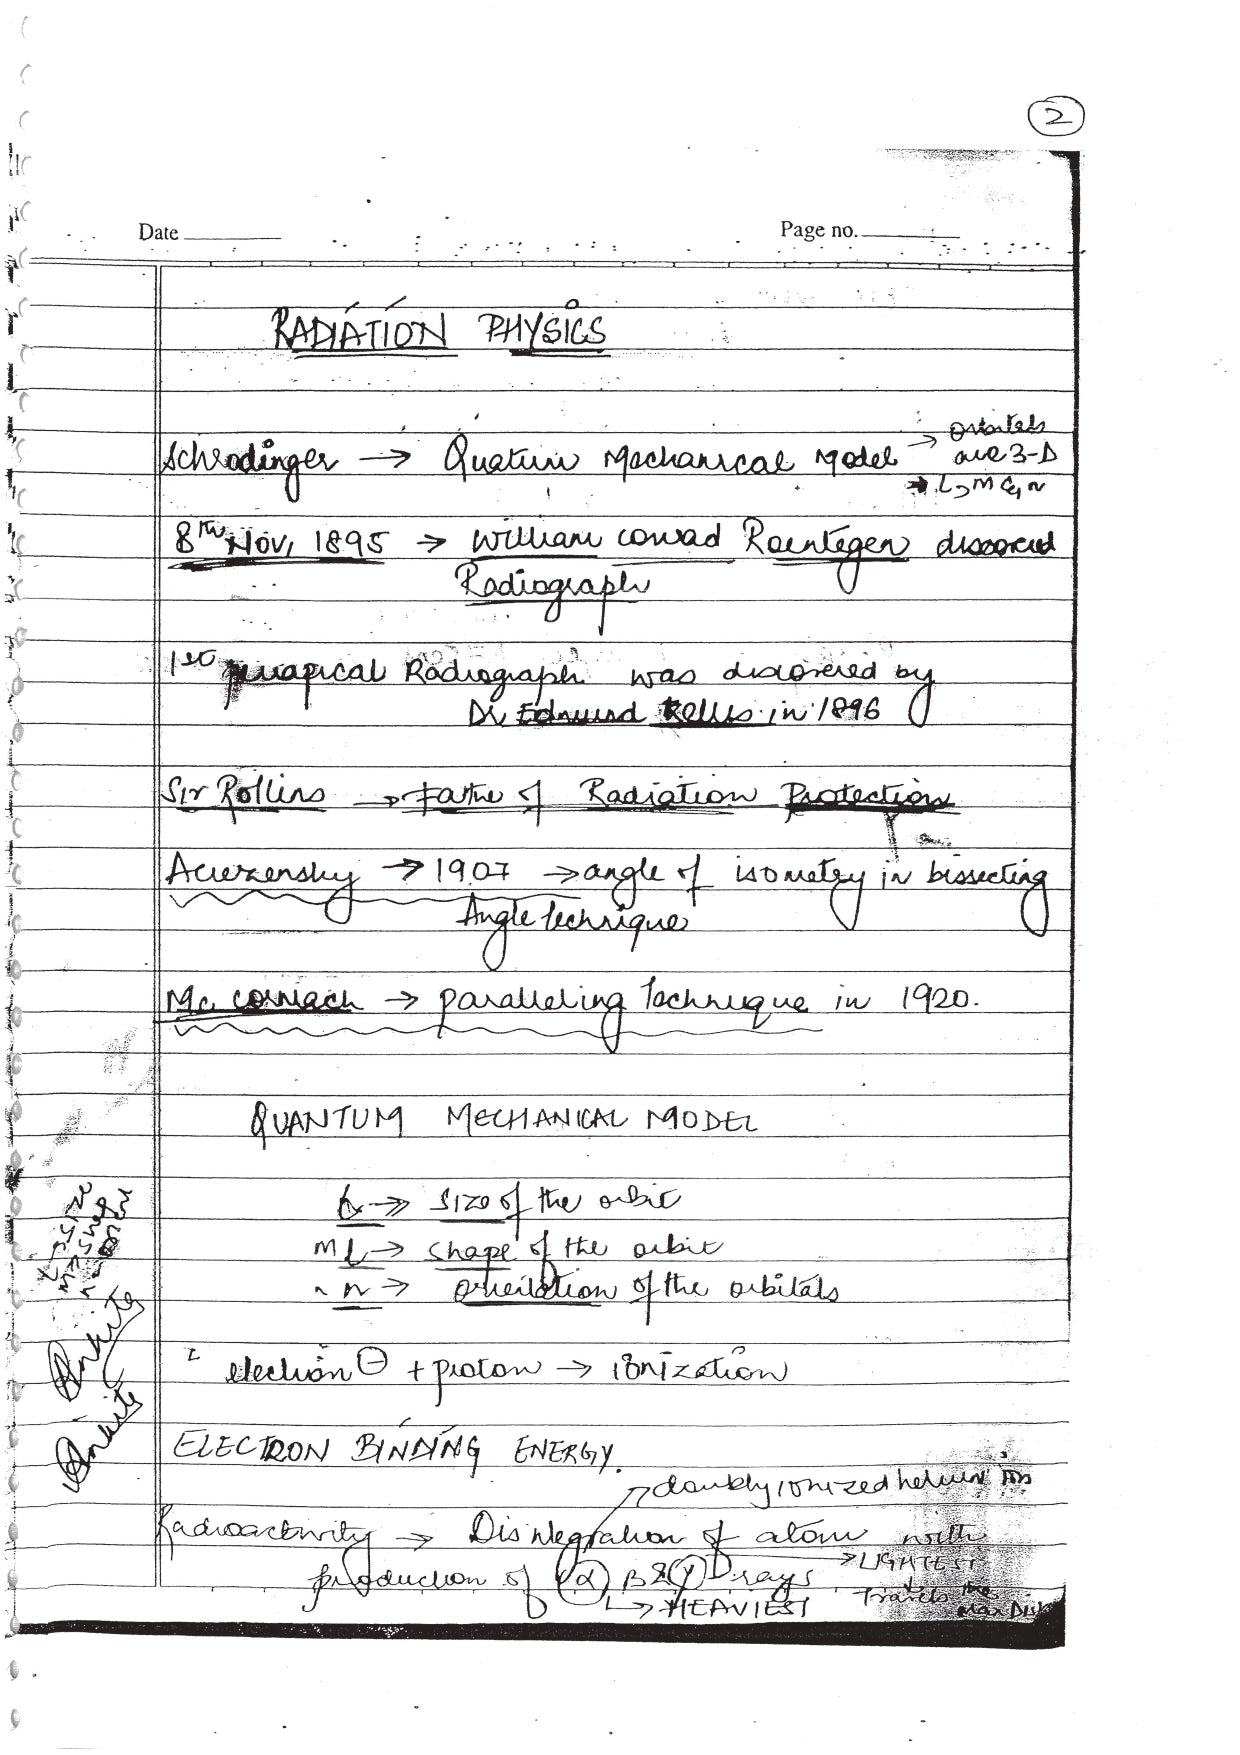 2
Date
Page no.
RADIATION PHYSICS
Schrodinger → Quatum Mechanical Model → orbitals
are 3-D
→ L, M & n
8th Nov, 1895 → William conrad Roentegen discovered
Radiograph
1st periapical Radiograph was discovered by
Dr Edmund Kells in 1896
Sir Rollins → Father of Radiation Protection
→ 1907 → angle of isometry in bissecting
Angle Technique
Mc cormach → paralleling Technique in 1920.
QUANTUM MECHANICAL MODEL
L → size of the orbit
M → shape of the orbit
n → orientation of the orbitals
L → size
M → shape
Ankita
Ankita
electron ⊖ + proton → ionization
ELECTRON BINDING ENERGY.
→ doubly ionized helium ions
Radioactivity → Disintegration of atom with
production of (α) β & (γ) rays → LIGHTEST
↳ HEAVIEST Travels the
max Dist